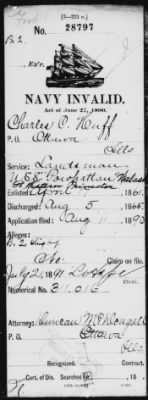 [3—221 a.]
No. 28797
B 2
Ex'r.
NAVY INVALID.
Act of June 27, 1890.
Charles C. Huff
P. O. Ottawa
Ills
Service: Landsman
U.S.S. Powhattan Wabash
Enlisted 1861.
Discharged: Aug 5, 1865.
Application filed: Aug 11, 1890.
Alleges:
No Claim on file.
July 2, 1891
Clerk.
Numerical No. 311,016
Attorney: Duncan McDougall
P. O. Ottawa
Ills
Recognized: Contract.
Cert. of Dis. Searched 18